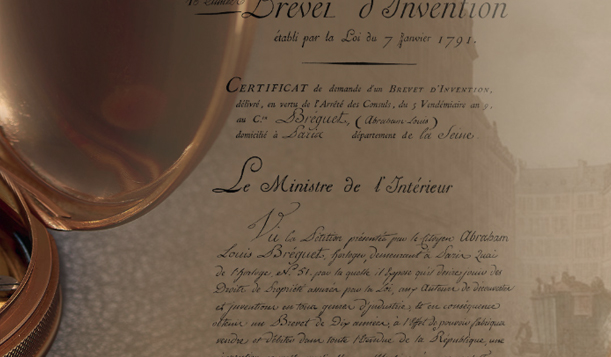 Brevet d'Invention
établi par la Loi du 7 Janvier 1791.
CERTIFICAT de demande d'un BREVET D'INVENTION,
délivré, en vertu de l'Arrêté des Consuls, du 5 Vendémiaire an 9,
au C.en Breguet, (Abraham Louis)
domicilié à Paris département de la Seine
Le Ministre de l'Intérieur
Vu la Pétition présentée par le Citoyen Abraham
Louis Bréguet, horloger, demeurant à Paris Quai
de l'horloge, N.° 51, par laquelle il expose qu'il desire jouir des
Droits de Propriété assurés par la Loi, aux Auteurs de découvertes
et inventions en tout genre d'industrie, et en conséquence
obtenir un Brevet de Dix années, à l'Effet de pouvoir fabriquer
vendre et débiter dans toute l'Etendue de la République, une